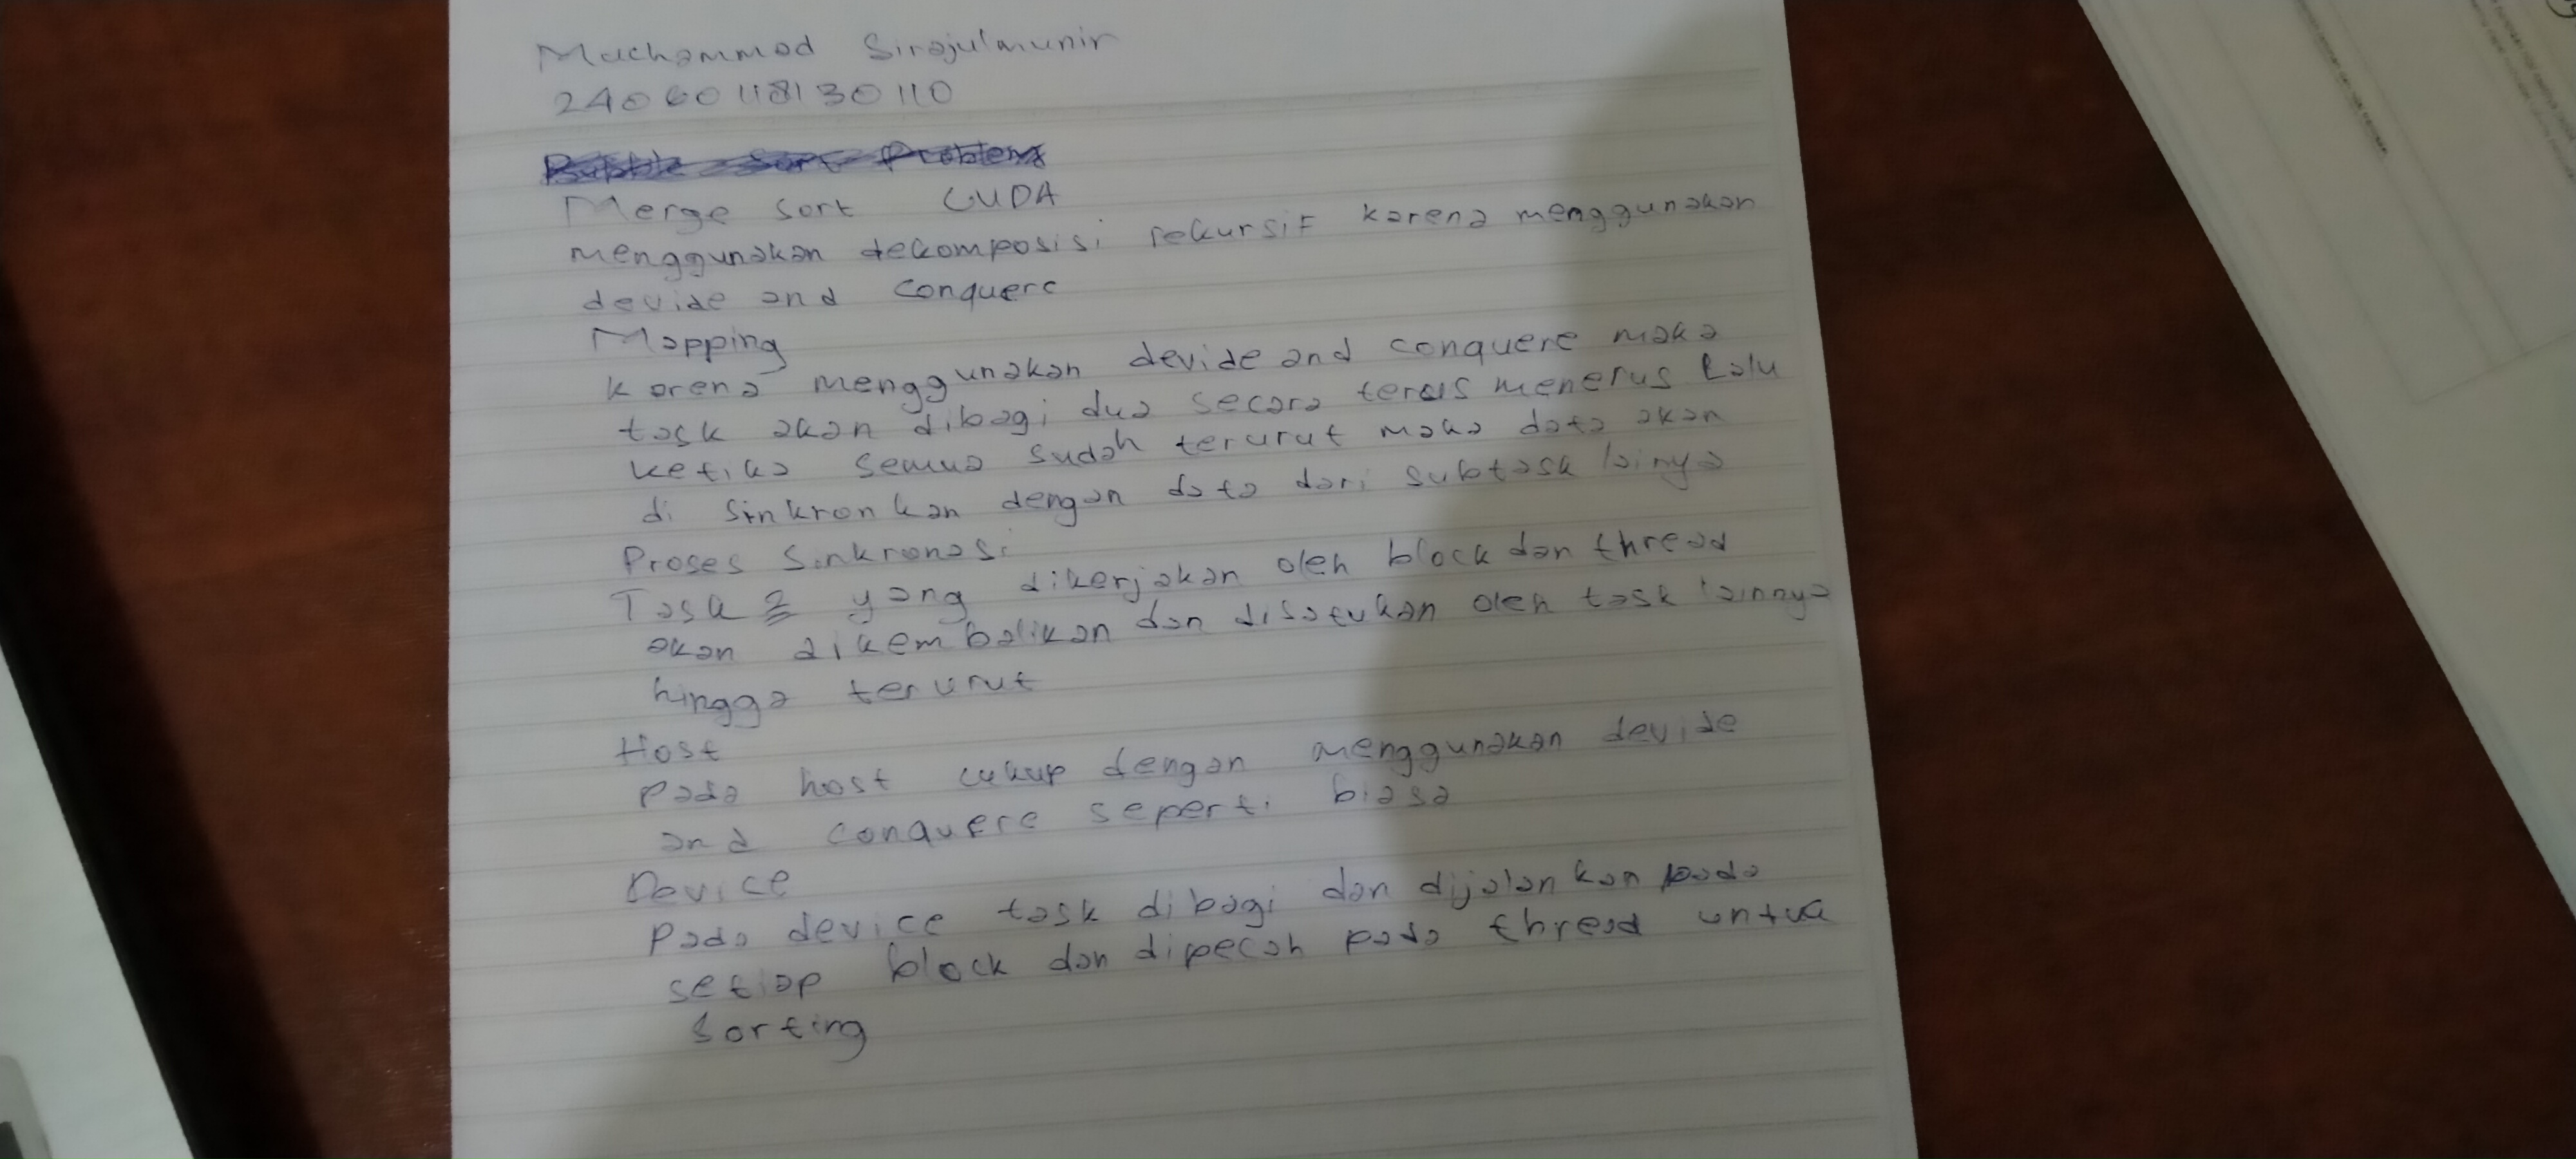 Muchammad Sirajulmunir
24060118130110
Bubble Sort Problem
Merge sort CUDA
menggunakan dekomposisi rekursif karena menggunakan
devide and conquere
Mapping
karena menggunakan devide and conquere maka
task akan dibagi dua secara terus menerus lalu
ketika semua sudah terurut maka data akan
di sinkronkan dengan data dari subtask lainya
Proses Sinkronasi
Task2 yang dikerjakan oleh block dan thread
akan dikembalikan dan disatukan oleh task lainnya
hingga terurut
Host
Pada host cukup dengan menggunakan devide
and conquere seperti biasa
Device
Pada device task dibagi dan dijalankan pada
setiap block dan dipecah pada thread untuk
sorting